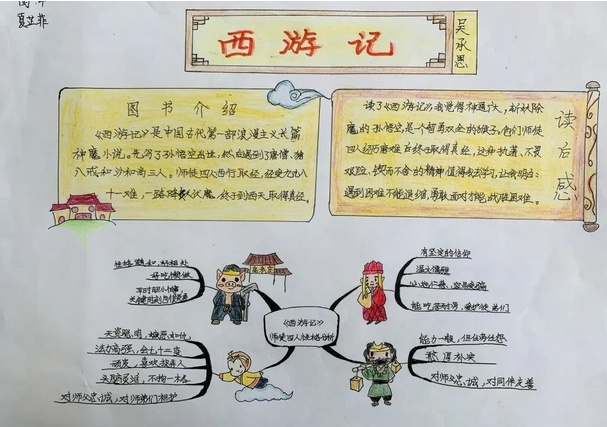 夏芷菲
西游记
吴承恩
图书介绍
《西游记》是中国古代第一部浪漫主义长篇
神魔小说。先写了孙悟空出世,然后遇到了唐僧、猪
八戒和沙和尚三人。师徒四人西行取经,经受九九八
十一难,一路降妖伏魔,终于到西天取得真经。
读后感
读了《西游记》,我觉得神通广大,斩妖除
魔的孙悟空,是一个智勇双全的猴子。他们师徒
四人经历磨难后终于取得真经,这种执著、不畏
艰险、锲而不舍的精神值得我去学习,让我明白:
遇到困难不能退缩,勇敢面对才能战胜困难。
性格温和,好相处
好吃懒做
高老庄
《西游记》
师徒四人性格分析
有坚定的信仰
温文儒雅
心地仁慈,容易受骗
能吃苦耐劳,爱护徒弟们
天资聪明,嫉恶如仇
法力高强,会七十二变
顽皮,喜欢捉弄人
头脑灵活,不拘一格
对师父忠诚,对师弟们袒护
能力一般,但任劳任怨
憨厚朴实
对师父忠诚,对同伴友善